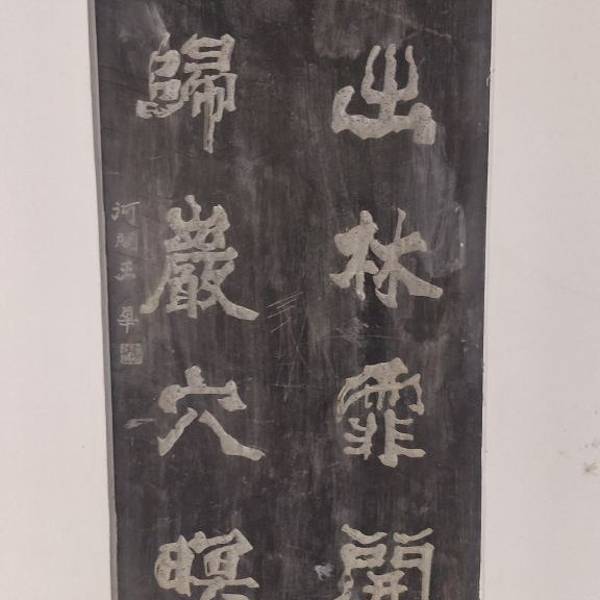 出林霏開
歸巖穴暝
河間